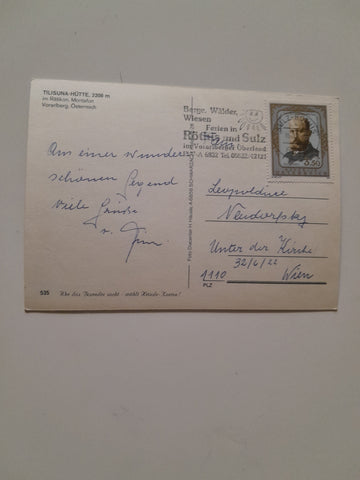 TILISUNA-HÜTTE, 2208 m
im Rätikon, Montafon
Vorarlberg, Österreich
Berge, Wälder,
Wiesen
Ferien in
Röthis und Sulz
im Vorarlberger Oberland
A-6832 Tel. 05522/
6.50
Aus einer wunder
schönen Gegend
viele Grüße
v.
Leopoldine
Neudorfsky
Unter der Kirche
32/6/22
1110 Wien
PLZ
535 Wer das Besondere sucht - wählt